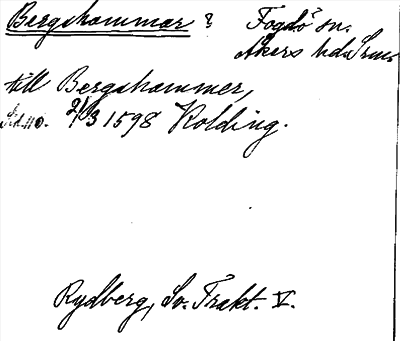 Bergshammar ? Fogdö sn.
Åkers hd Srm.
till Bergshammer,
Sid. 110. 2/3 1598 Kolding.
Rydberg, Sv. Trakt. V.